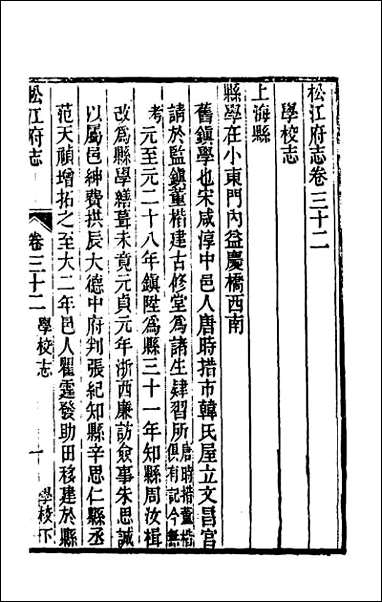 松江府志卷三十二
學校志
上海縣
縣學在小東門內益慶橋西南
舊鎮學也宋咸淳中邑人唐時措市韓氏屋立文昌宮
請於監鎮董楷建古修堂爲諸生肄習所唐時措董楷俱有記今無
考元至元二十八年鎮陞爲縣三十一年知縣周汝楫
改爲縣學繕葺未竟元貞元年浙西廉訪僉事朱思誠
以屬邑紳費拱辰大德中府判張紀知縣辛思仁縣丞
范天禎增拓之至大二年邑人瞿霆發助田移建於縣
松江府志 卷三十二 學校志 一 學校下